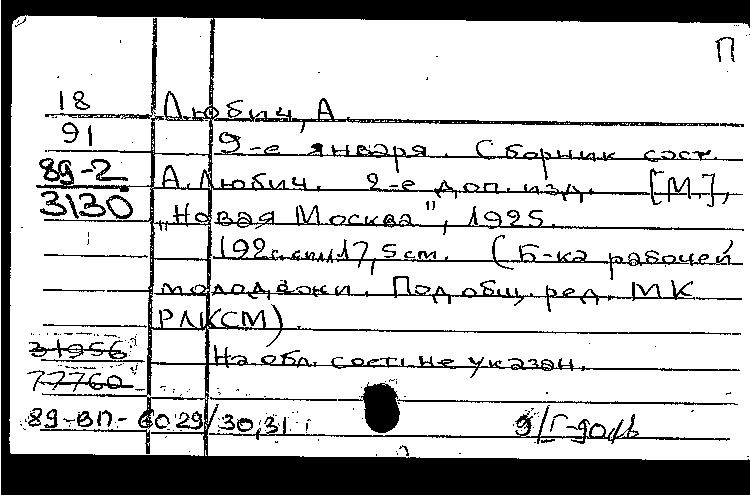 П
18 Любич, А.
91 9-е января. Сборник сост.
89-2 А. Любич. 2-е доп. изд. [М.],
3130 „Новая Москва", 1925.
192 с. с илл. 17,5 см. (Б-ка рабочей
молодежи. Под общ. ред. МК
РЛКСМ).
31956 На обл. сост. не указан.
77760
89-ВП-6029/30,31 9/I-90